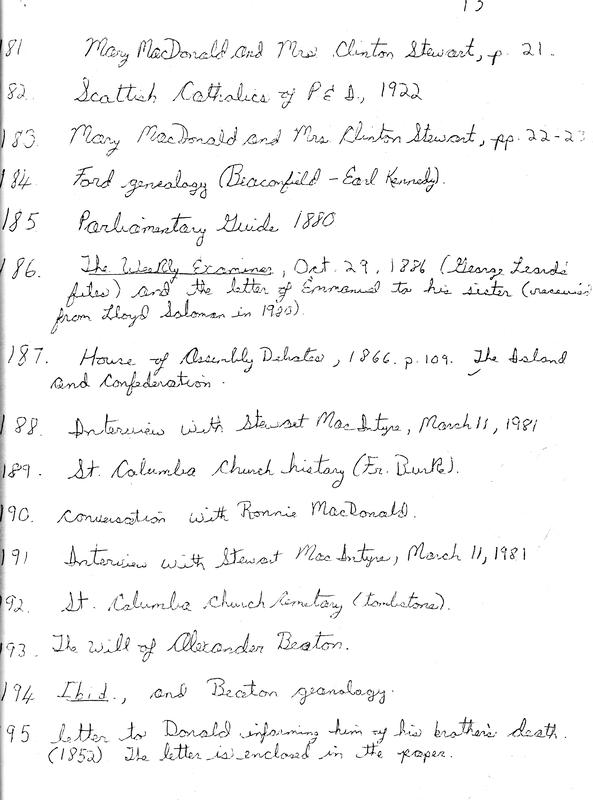 13
181 Mary MacDonald and Mrs. Clinton Stewart, p. 21.
82. Scottish Catholics of P E I., 1922
183. Mary MacDonald and Mrs Clinton Stewart, pp. 22-23
184. Ford genealogy (Beaconfield - Earl Kennedy).
185 Parliamentary Guide 1880
186. The Weekly Examiner, Oct. 29, 1886 (George Leard's
files) and the letter of Emmanuel to his sister (received
from Lloyd Saloman in 1980).
187. House of Assembly Debates, 1866. p. 109. The Island
and Confederation.
188. Interview with Stewart MacIntyre, March 11, 1981
189. St. Columba Church history (Fr. Burke).
190. conversation with Ronnie MacDonald.
191 Interview with Stewart MacIntyre, March 11, 1981
92. St. Columba Church Cemetary (tombstone).
93. The Will of Alexander Beaton.
194 Ibid., and Beaton geanology.
95 letter to Donald informing him of his brother's death.
(1852) The letter is enclosed in the paper.